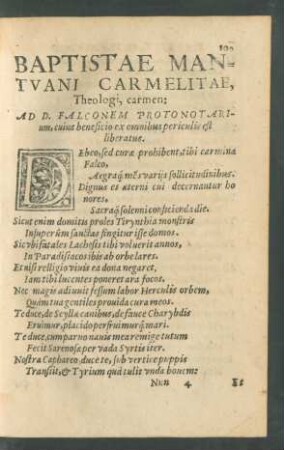 BAPTISTAE MAN-
TVANI CARMELITAE,
Theologi, carmen:
AD D. FALCONEM PROTONOTARI-
um, cuius beneficio ex omnibus periculis est
liberatus.
DEbeo, sed curæ prohibent, tibi carmina
Falco,
Aegraq́; mẽs varijs sollicitudinibus.
Dignus es æterni cui decernantur ho
nores,
Sacraq́; solenni conficienda die.
Sicut enim domitis proles Tirynthia monstris
Insuperûm sanctas fingitur isse domos.
Sic vbi fatales Lachesis tibi voluerit annos,
In Paradisiacos ibis ab orbe lares.
Et nisi relligio viuis ea dona negaret,
Iam tibi lucentes poneret ara focos.
Nec magis adiuuit fessum labor Herculis orbem,
Quàm tua gentiles prouida cura meos.
Te duce, de Scyllæ canibus, de fauce Charybdis
Eruimur, placido perfruimurq́; mari.
Te duce, cum paruo nauis mea remige tutum
Fecit arenosæ per vada Syrtis iter.
Nostra Caphareo duce te, sub vertice puppis
Transijt, & Tyrium quà tulit vnda bouem:
Nnn 4 Et